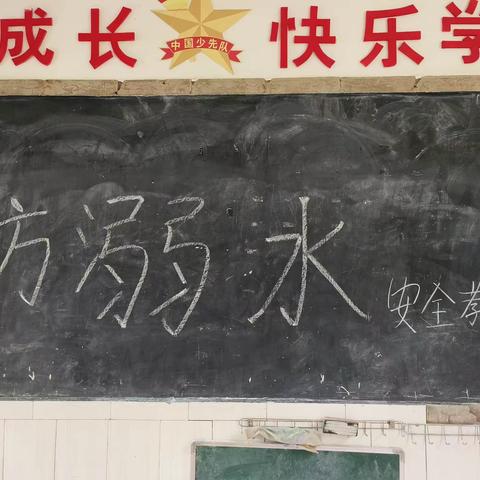 成长 快乐学
中国少先队
方溺水
安全教